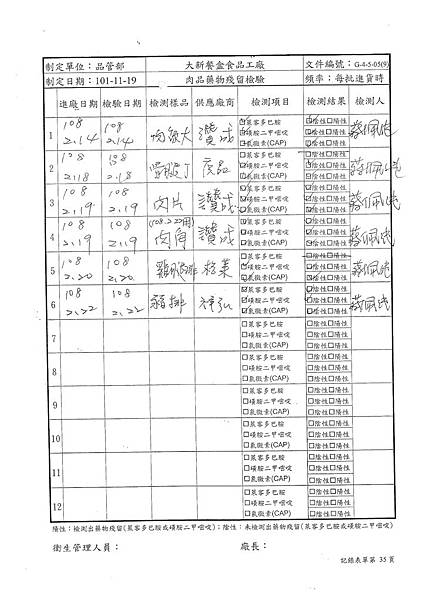 制定單位：品管部 大新餐盒食品工廠 文件編號：G-4-5-05(9)
制定日期：101-11-19 肉品藥物殘留檢驗 頻率：每批進貨時
進廠日期 檢驗日期 檢測樣品 供應廠商 檢測項目 檢測結果 檢測人
1 108 2.14 108 2.14 讚成 蔡佩
☑萊客多巴胺 陰性□陽性
☑磺胺二甲嘧啶 陰性□陽性
□氯黴素(CAP) □陰性□陽性
2 108 2.18 108 2.18 蔡佩
☑萊客多巴胺 陰性□陽性
☑磺胺二甲嘧啶 陰性□陽性
□氯黴素(CAP) □陰性□陽性
3 108 2.19 108 2.19 肉片 讚成 蔡佩
☑萊客多巴胺 陰性□陽性
☑磺胺二甲嘧啶 陰性□陽性
□氯黴素(CAP) □陰性□陽性
4 108 2.19 108 2.19 (108.2.22用) 肉角 讚成 蔡佩
☑萊客多巴胺 陰性□陽性
☑磺胺二甲嘧啶 陰性□陽性
□氯黴素(CAP) □陰性□陽性
5 108 2.20 108 2.20 蔡佩
☑萊客多巴胺 陰性□陽性
☑磺胺二甲嘧啶 陰性□陽性
□氯黴素(CAP) □陰性□陽性
6 108 2.22 108 2.22 豬排 蔡佩
☑萊客多巴胺 陰性□陽性
☑磺胺二甲嘧啶 陰性□陽性
氯黴素(CAP) 陰性□陽性
7
□萊客多巴胺 □陰性□陽性
□磺胺二甲嘧啶 □陰性□陽性
□氯黴素(CAP) □陰性□陽性
8
□萊客多巴胺 □陰性□陽性
□磺胺二甲嘧啶 □陰性□陽性
□氯黴素(CAP) □陰性□陽性
9
□萊客多巴胺 □陰性□陽性
□磺胺二甲嘧啶 □陰性□陽性
□氯黴素(CAP) □陰性□陽性
10
□萊客多巴胺 □陰性□陽性
□磺胺二甲嘧啶 □陰性□陽性
□氯黴素(CAP) □陰性□陽性
11
□萊客多巴胺 □陰性□陽性
□磺胺二甲嘧啶 □陰性□陽性
□氯黴素(CAP) □陰性□陽性
12
□萊客多巴胺 □陰性□陽性
□磺胺二甲嘧啶 □陰性□陽性
□氯黴素(CAP) □陰性□陽性
陽性：檢測出藥物殘留(萊客多巴胺或磺胺二甲嘧啶)；陰性：未檢測出藥物殘留(萊客多巴胺或磺胺二甲嘧啶)
衛生管理人員： 廠長：
記錄表單第 35 頁